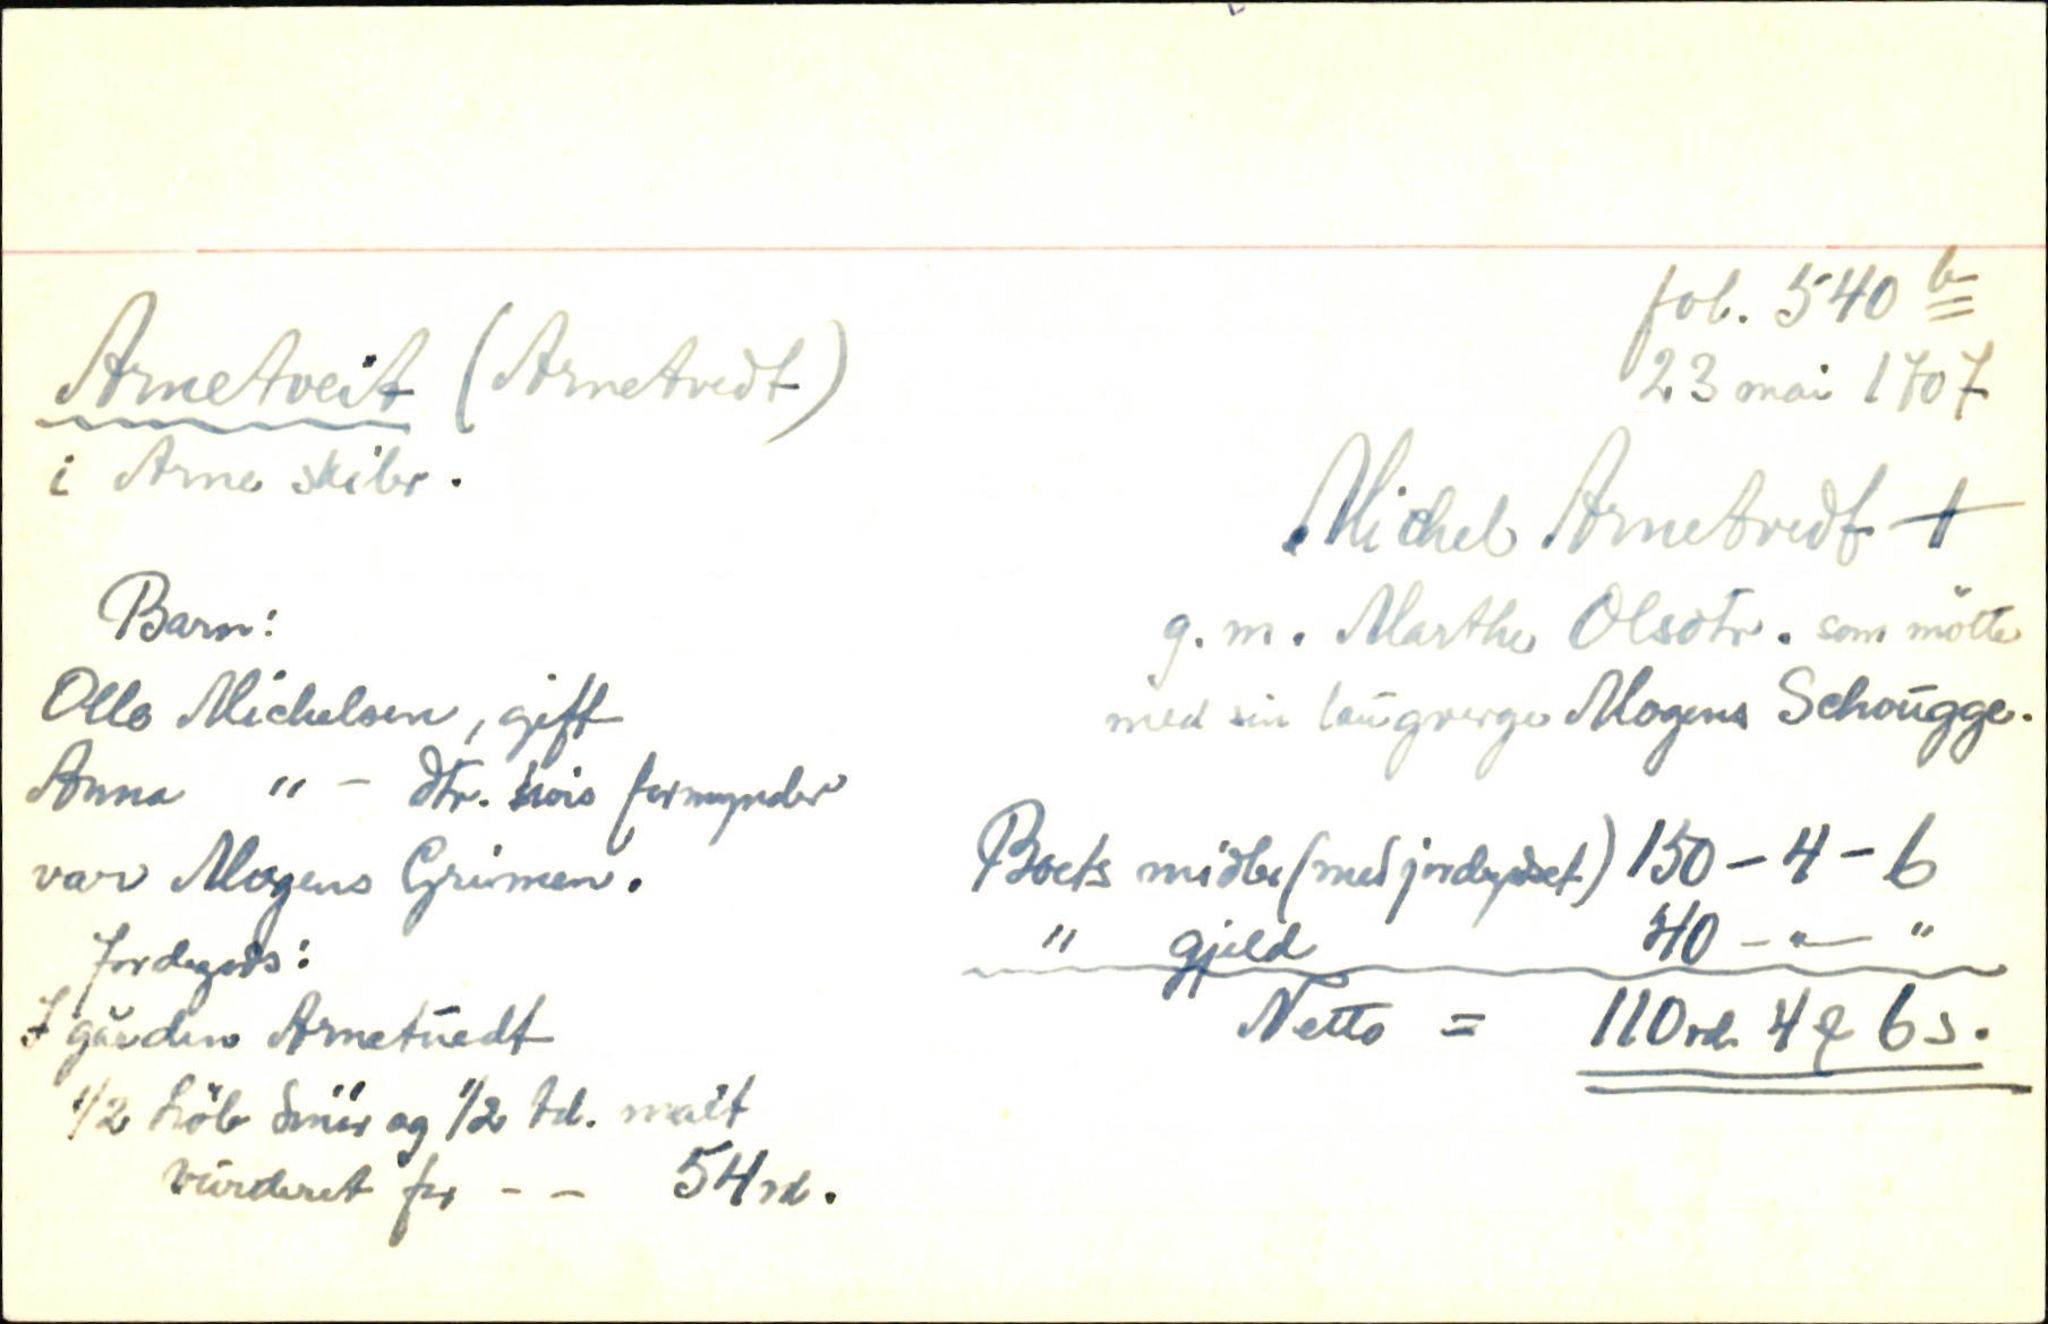 fol. 540 b
23 mai 1707
Arnetveit (Arnetvedt)
i Arne skibr.
Michel Arnetvedt +
g. m. Marthe Olsdtr. som mötte
med sin laugverge Mogens Schougge.
Barn:
Olle Michelsen, gift
Anna " - dtr. hvis formynder
var Mogens Grimen.
Jordegods:
I gården Arnetuedt
1/2 löb smör og 1/2 td. malt
vurderet for - - 54 rd.
Boets midler (med jordegodset) 150 - 4 - 6
" gjeld 40 - " - "
Netto = 110 rd. 4 ʠ 6 s.